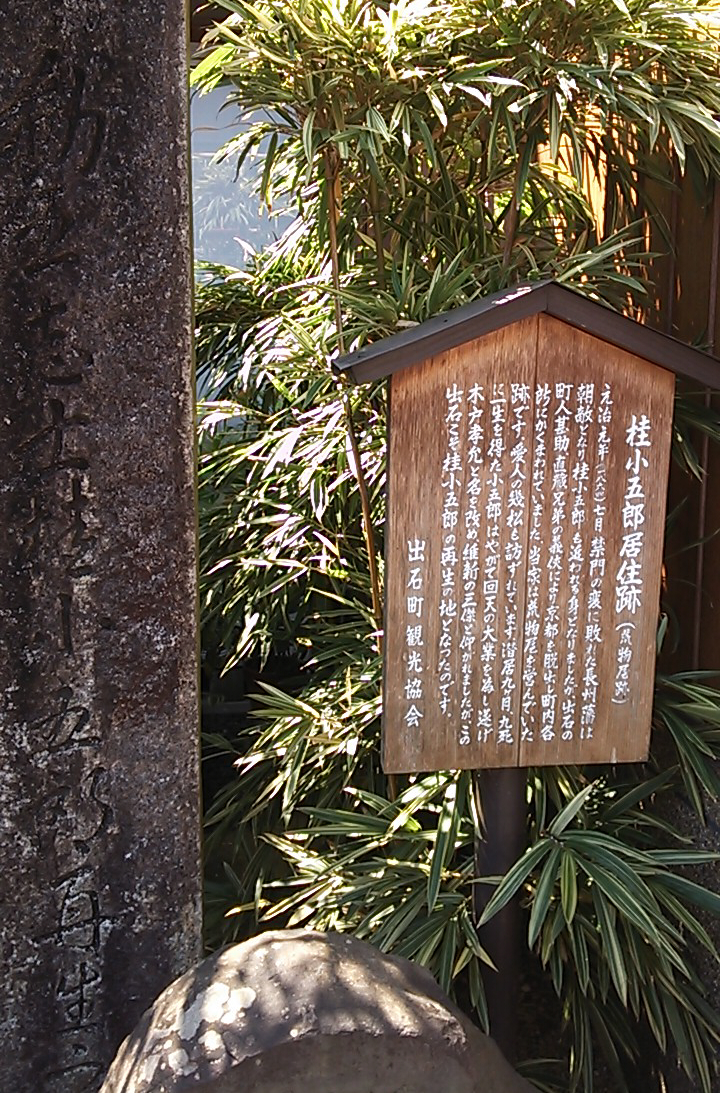 桂小五郎居住跡（荒物屋跡）
元治元年（一八六四）七月 禁門の変に敗れた長州藩は
朝敵となり桂小五郎も追われる身となりましたが出石の
町人甚助・直蔵兄弟の義侠により京都を脱出し町内各
所にかくまわれていました。当家は荒物屋を営んでいた
跡です。愛人の幾松も訪ずれています。潜居九ヶ月、九死
に一生を得た小五郎はやがて回天の大業を為し遂げ
木戸孝允と名を改め維新の三傑と仰がれましたがこの
出石こそ桂小五郎の再生の地となったのです。
出石町観光協会
勤王志士桂小五郎再生之